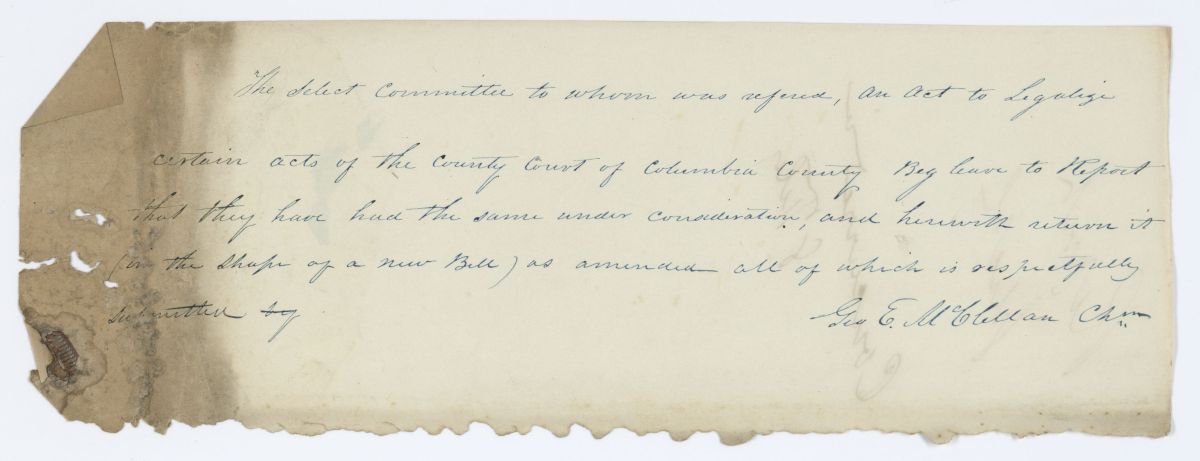 The select committee to whom was refered, an act to Legalize
certain acts of the county court of Columbia county Beg leave to Report
that they have had the same under consideration, and herewith return it
(in the shape of a new Bill) as amended all of which is respectfully
submitted by
Geo E. McClellan Chm